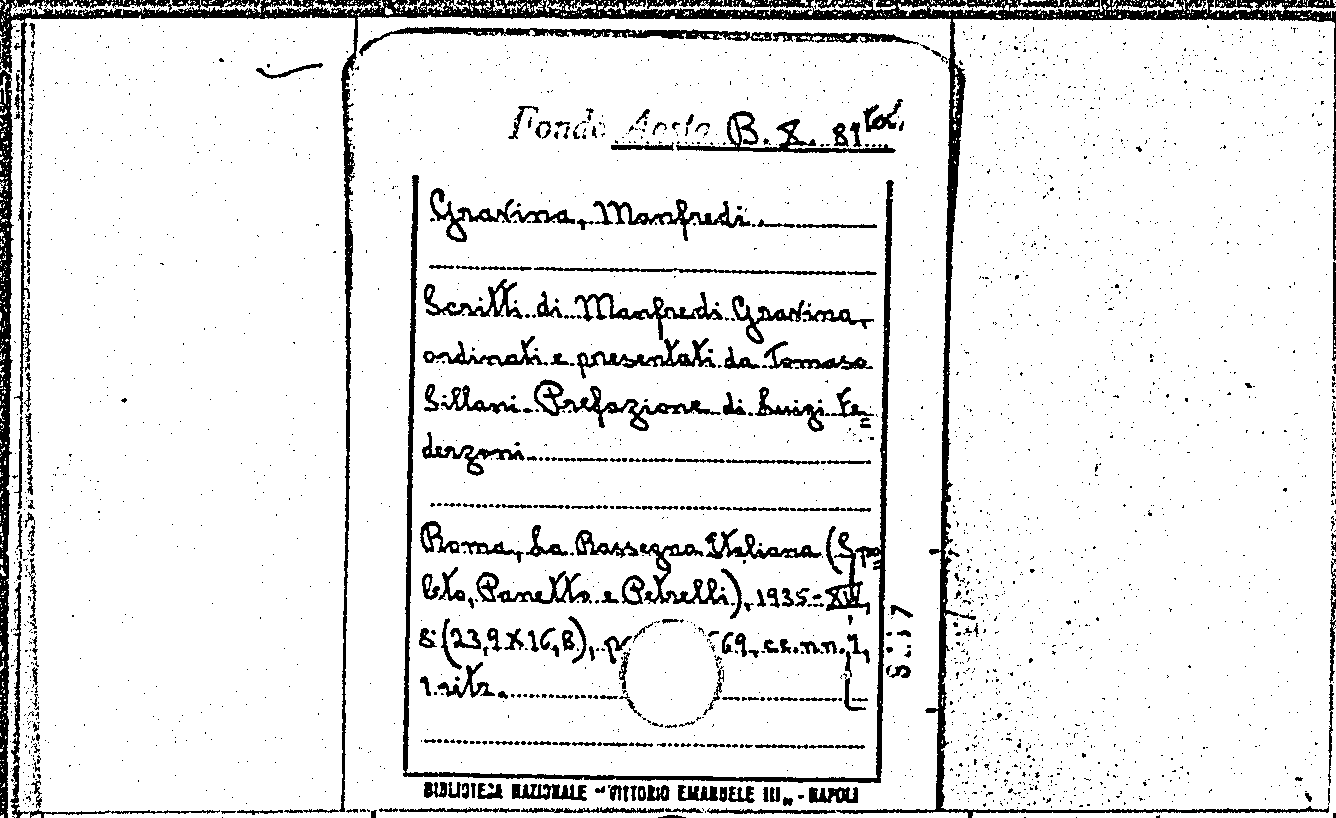 Fondo Aosta B. 8. 81 tot.
Gravina, Manfredi.
Scritti di Manfredi Gravina,
ordinati e presentati da Tomaso
Sillani. Prefazione di Luigi Fe=
derzoni.
Roma, La Rassegna Italiana (Spo=
leto, Panetto e Petrelli), 1935-XIII,
8: (23,9 X 16,8), 69, cc.nn. 1,
1 ritr.
BIBLIOTECA NAZIONALE "VITTORIO EMANUELE III" - NAPOLI